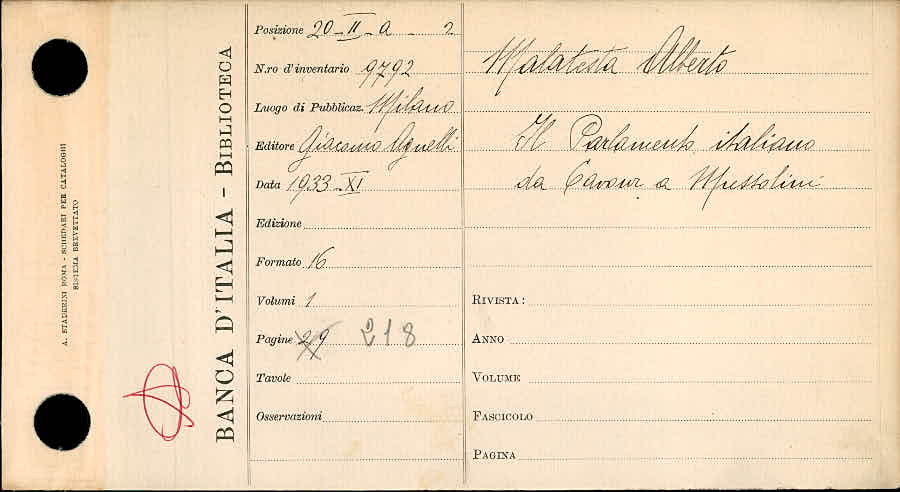 A. STADERINI ROMA - SCHEDARI PER CATALOGHI
SISTEMA BREVETTATO
BANCA D'ITALIA - BIBLIOTECA
Posizione 20 - II - a - 2
N.ro d'inventario 9792
Luogo di Pubblicaz. Milano
Editore Giacomo Agnelli
Data 1933 - XI
Edizione
Formato 16
Volumi 1
Pagine 219 218
Tavole
Osservazioni
Malatesta Alberto
Il Parlamento italiano
da Cavour a Mussolini
RIVISTA:
ANNO
VOLUME
FASCICOLO
PAGINA